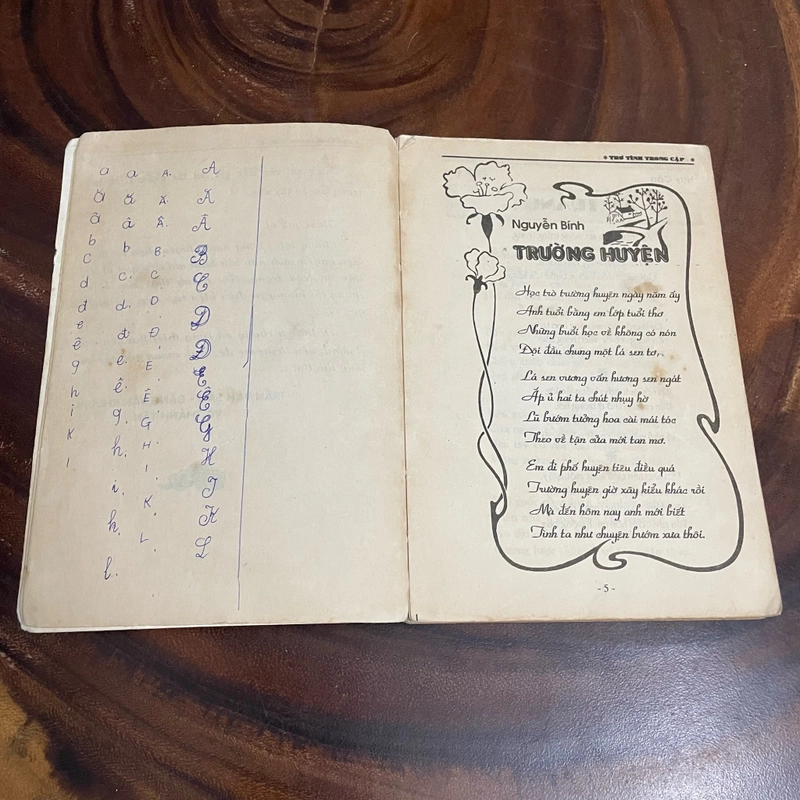 a a A. A
ă ă Ă. Ă
â â Â. Â
b b B B
c c. C C
d d. D D
đ đ Đ Đ
e ẻ E. E
ê ê Ê Ê
g g. G G
h h. H H
i i. I I
K k. K. K
l l. L. L
THƠ TÌNH TRONG CẶP
Nguyễn Bính
TRƯỜNG HUYỆN
Học trò trường huyện ngày năm ấy
Anh tuổi bằng em lớp tuổi thơ
Những buổi học về không có nón
Đội đầu chung một lá sen tơ.
Lá sen vương vấn hương sen ngát
Ấp ủ hai ta chút nhụy hờ
Lũ bướm tưởng hoa cài mái tóc
Theo về tận cửa mới tan mơ.
Em đi phố huyện tiêu điều quá
Trường huyện giờ xây kiểu khác rồi
Mà đến hôm nay anh mới biết
Tình ta như chuyện bướm xưa thôi.
- 5 -